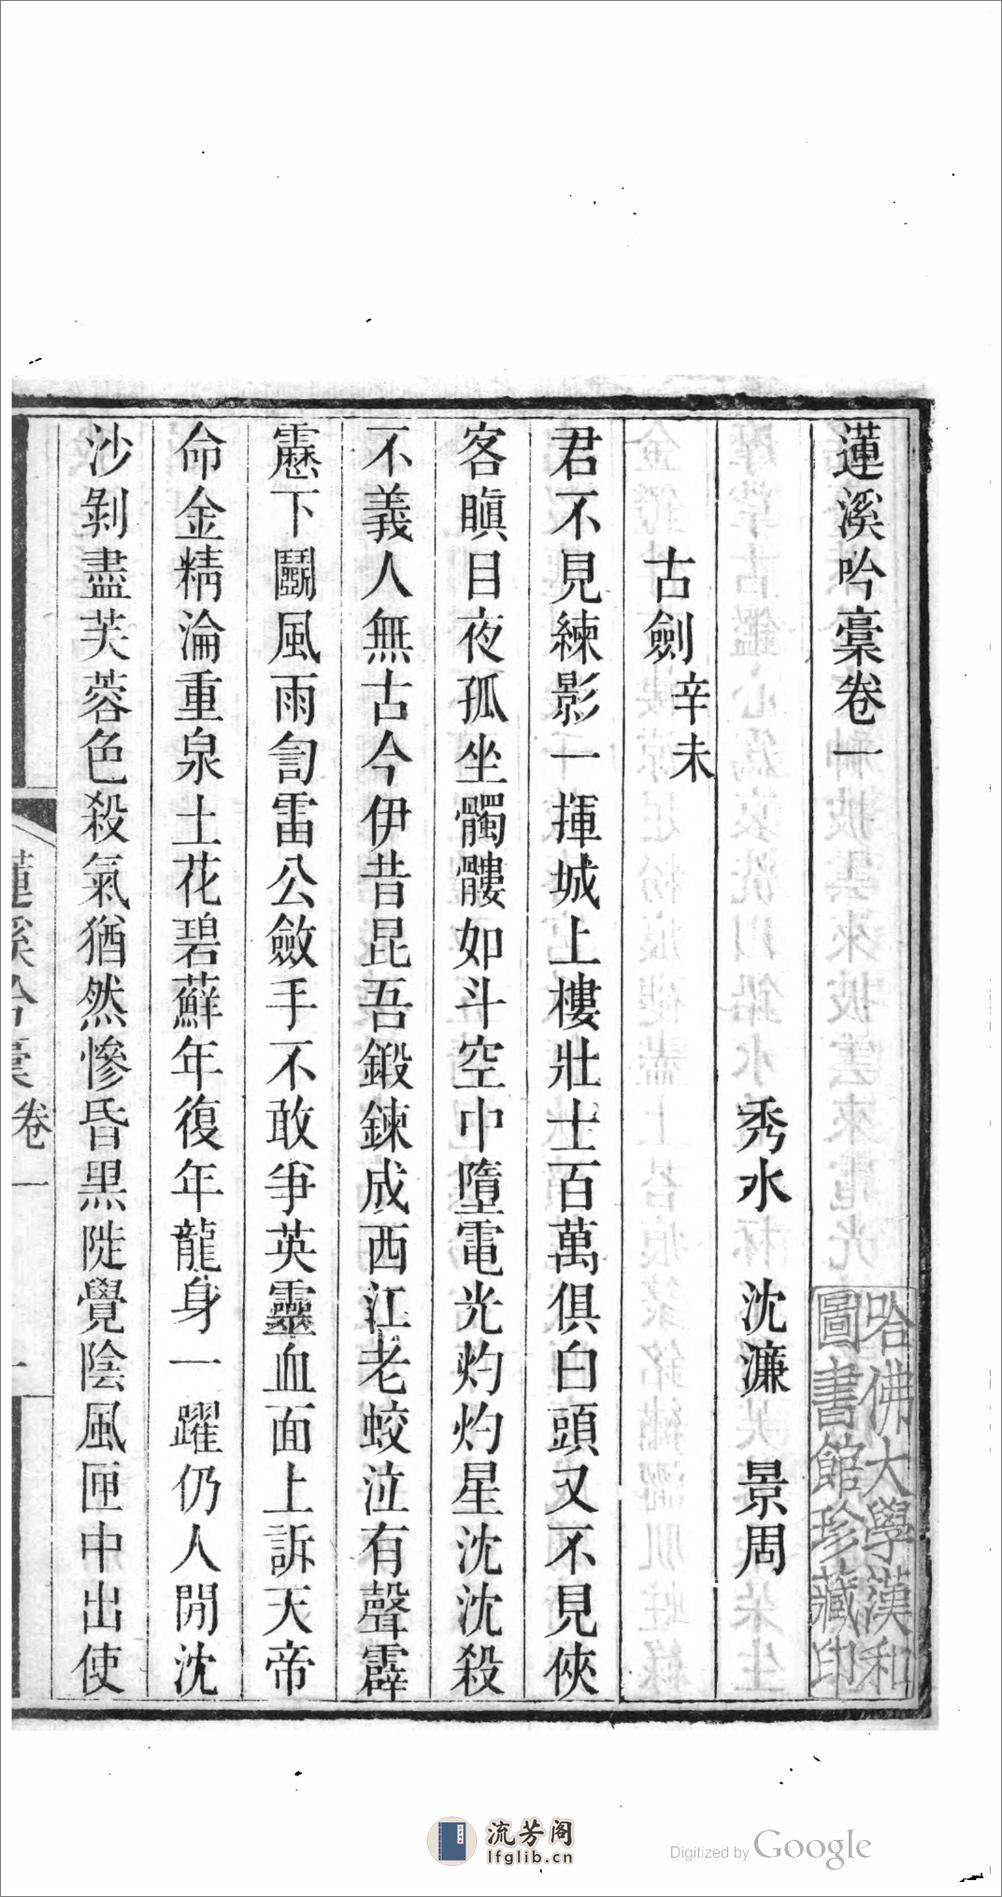 蓮溪吟稾卷一
秀水 沈濂 景周
古劍辛未
君不見練影一揮城上樓壯士百萬俱白頭又不見俠
客瞋目夜孤坐髑髏如斗空中墮電光灼灼星沈沈殺
不義人無古今伊昔昆吾鍛鍊成西江老蛟泣有聲霹
靂下鬭風雨訇雷公斂手不敢爭英靈血面上訴天帝
命金精淪重泉土花碧蘚年復年龍身一躍仍人閒沈
沙剝盡芙蓉色殺氣猶然慘昏黑陡覺陰風匣中出使
蓮溪吟稾卷一
一
哈佛大學漢和
圖書館珍藏印
流芳阁
lfglib.cn
Digitized by Google